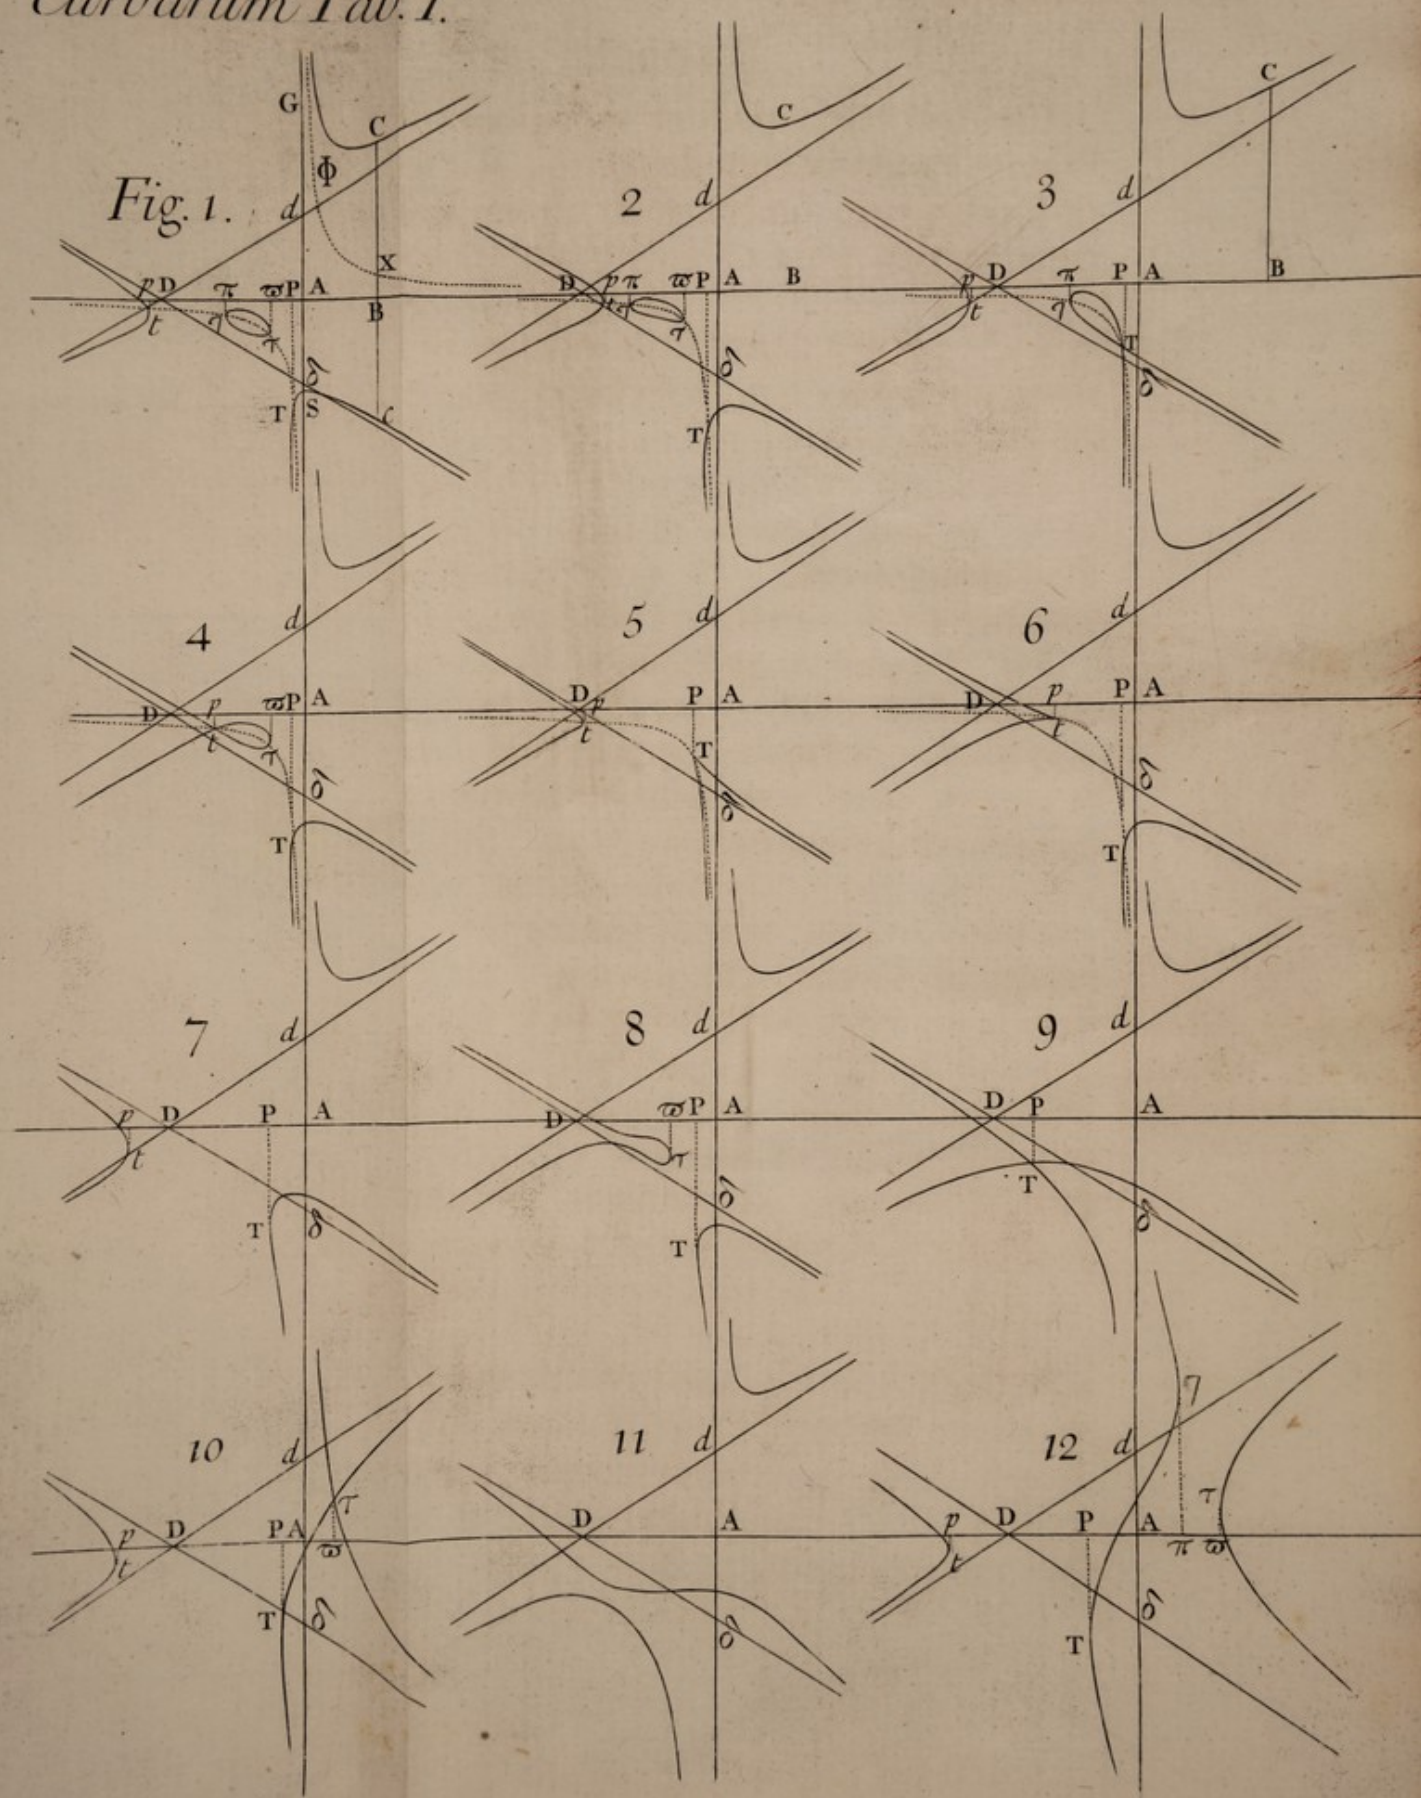 Curvarum Tab. I.
G C
Φ
Fig. 1. d
X
p D π ϖ P A
B
t τ τ
δ
T S c
2
C
d
D p π ϖ P A B
t τ τ
δ
T
3
C
d
p D π P A B
t τ T
δ
4
d
D p ϖ P A
t τ
δ
T
5
d
D p P A
t T
δ
6
d
D p P A
t
δ
T
7
d
p D P A
t
T δ
8
d
D ϖ P A
τ
δ
T
9
d
D P A
T
δ
10
d
τ
p D P A
t ϖ
T δ
11
d
D A
δ
12
d
τ
τ
p D P A
t π ϖ
δ
T